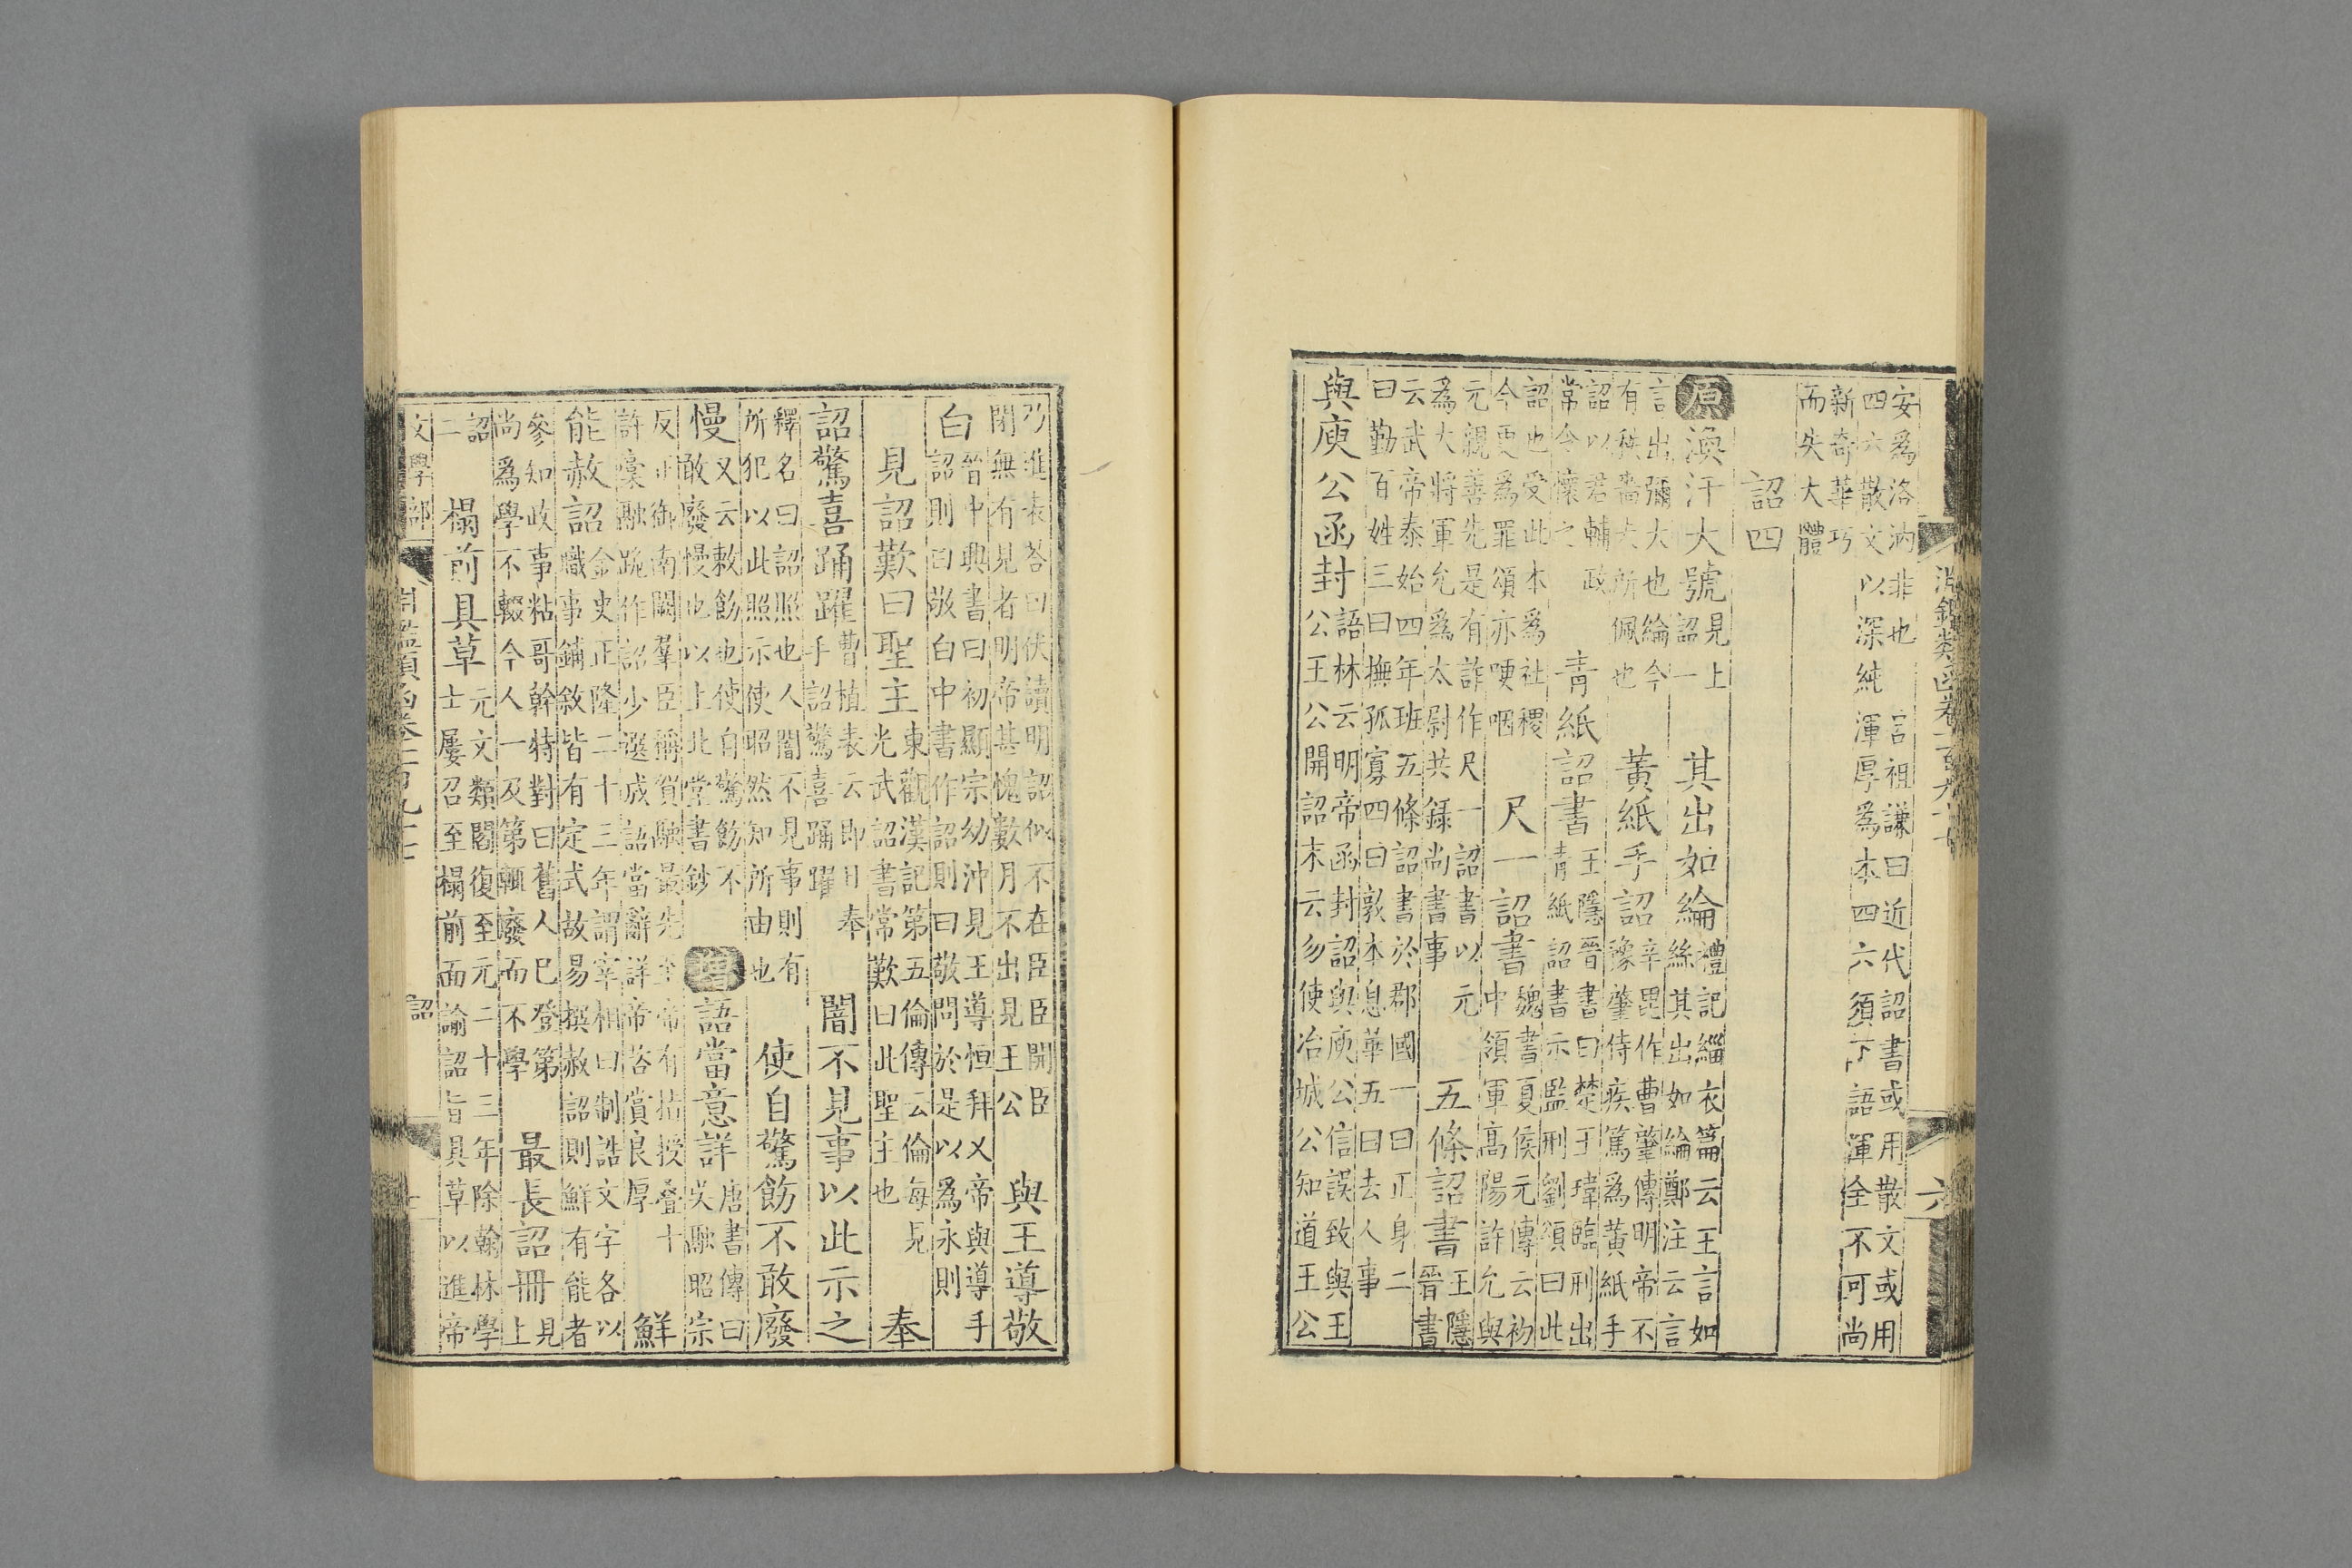 淵鑑類函卷一百九十七 六
安爲洛汭非也 宮祖謙曰近代詔書或用散文或用
四六散文以深純渾厚爲本四六須下語渾全不可尚
新奇華巧
而失大體
詔四
原渙汗大號
見上
詔一
其出如綸
禮記緇衣篇云王言如
絲其出如綸鄭注云言
言出彌大也綸今
有秩嗇夫所佩也
黃紙手詔
辛毗作曹肇傳明帝不
豫肇侍疾篤爲黃紙手
詔以君輔政
常令懷之
青紙詔書
王隱晉書曰楚王瑋臨刑出
青紙詔書示監刑劉頌曰此
詔也受此本爲社稷
今更爲罪頌亦哽咽
尺一詔書
魏書夏侯元傳云初
中領軍高陽許允與
元親善先是有詐作尺一詔書以元
爲大將軍允爲太尉共錄尚書事
五條詔書
王隱
晉書
云武帝泰始四年班五條詔書於郡國一曰正身二
曰勤百姓三曰撫孤寡四曰敦本息華五曰去人事
與庾公函封
語林云明帝函封詔與庾公信誤致與王
公王公開詔末云勿使冶城公知道王公
乃進表荅曰伏讀明詔似不在臣臣開臣
閉無有見者明帝甚愧數月不出見王公
與王導敬
白
晉中興書曰初顯宗幼沖見王導恒拜又帝與導手
詔則曰敬白中書作詔則曰敬問於是以爲永則
見詔歎曰聖主
東觀漢記第五倫傳云倫每見
光武詔書常歎曰此聖主也
奉
詔驚喜踊躍
曹植表云即日奉
手詔驚喜踊躍
闇不見事以此示之
釋名曰詔照也人闇不見事則有
所犯以此照示使昭然知所由也
使自驚飭不敢廢
慢
又云敕飭也使自驚飭不
敢廢慢也以上北堂書鈔
增語當意詳
唐書傳曰
吳融昭宗
反正御南闕羣臣稱賀融最先至帝有指授叠十
許稾融跪作詔少選成詔當辭詳帝荅賞良厚
鮮
能赦詔
金史正隆二十三年謂宰相曰制誥文字各以
職事鋪敘皆有定式故易撰赦詔則鮮有能者
參知政事粘哥斡特對曰舊人巳登第
尚爲學不輟今人一及第輒廢而不學
最長詔冊
見
上
詔
二
榻前具草
元文類閻復至元二十三年除翰林學
士屢召至榻前面諭詔旨具草以進帝
文學部 淵鑑類函卷一百九十七 詔